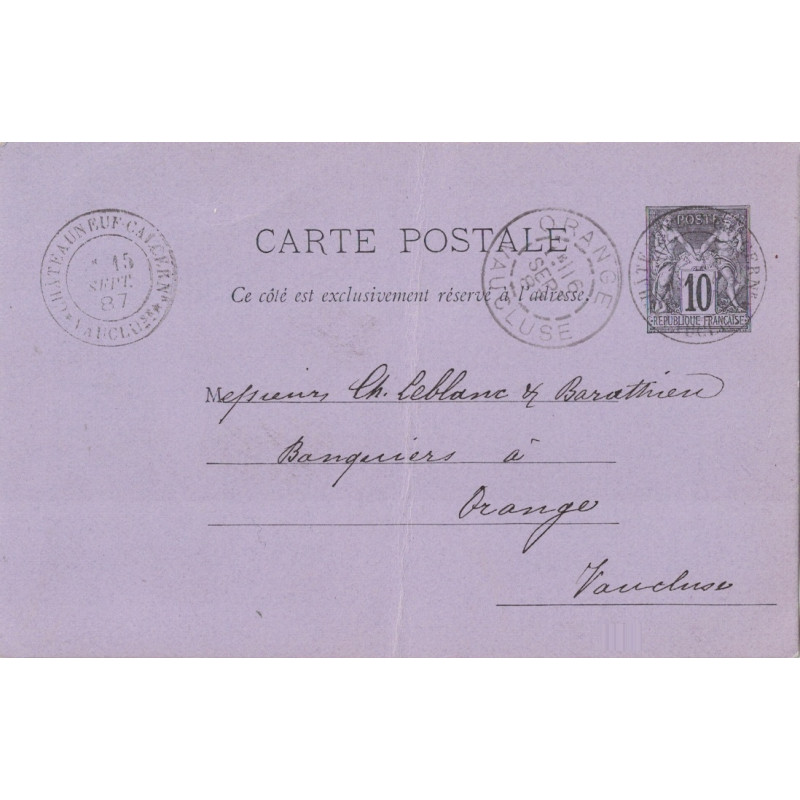 CHATEAUNEUF-CALCERNR
15
SEPT.
87
VAUCLUSE
CARTE POSTALE
Ce côté est exclusivement réservé à l'adresse.
ORANGE
16
SEPT
VAUCLUSE
POSTE
10
REPUBLIQUE FRANÇAISE
Messieurs Ch. Leblanc & Barathieu
Banquiers à
Orange
Vaucluse